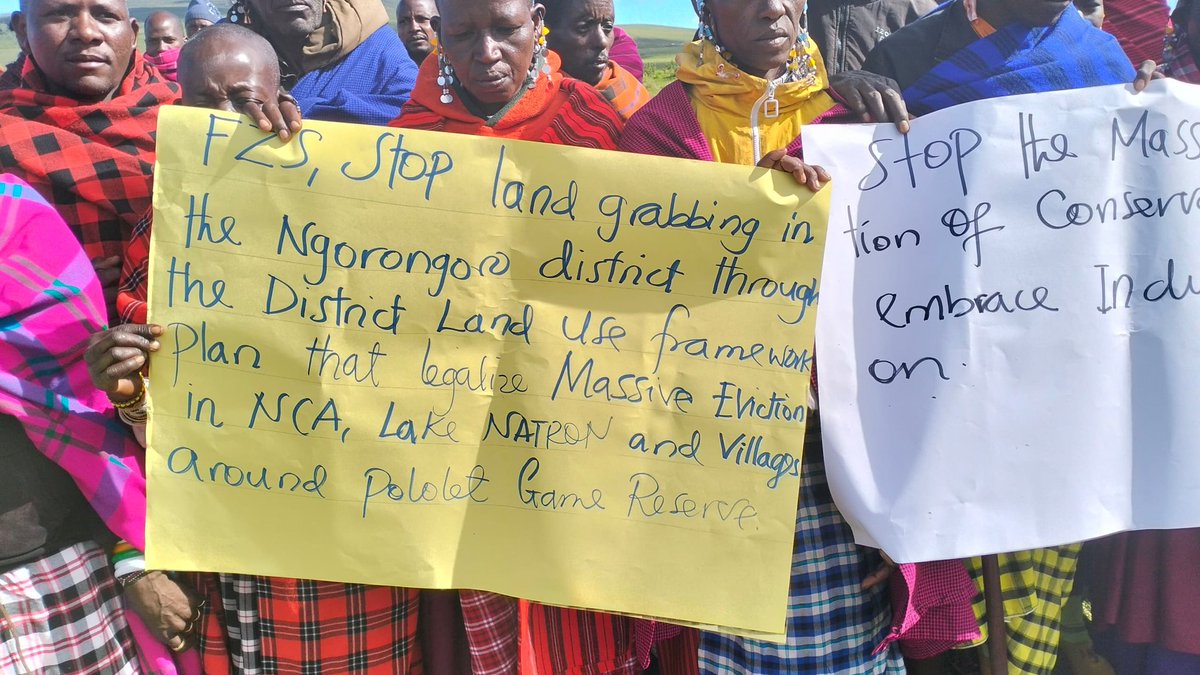 FZS, Stop land grabbing in
the Ngorongoro district through
the District Land Use framework
Plan that legalize Massive Eviction
in NCA, Lake NATRON and Villages
around Pololet Game Reserve.
Stop the
tion of
embrace
on.